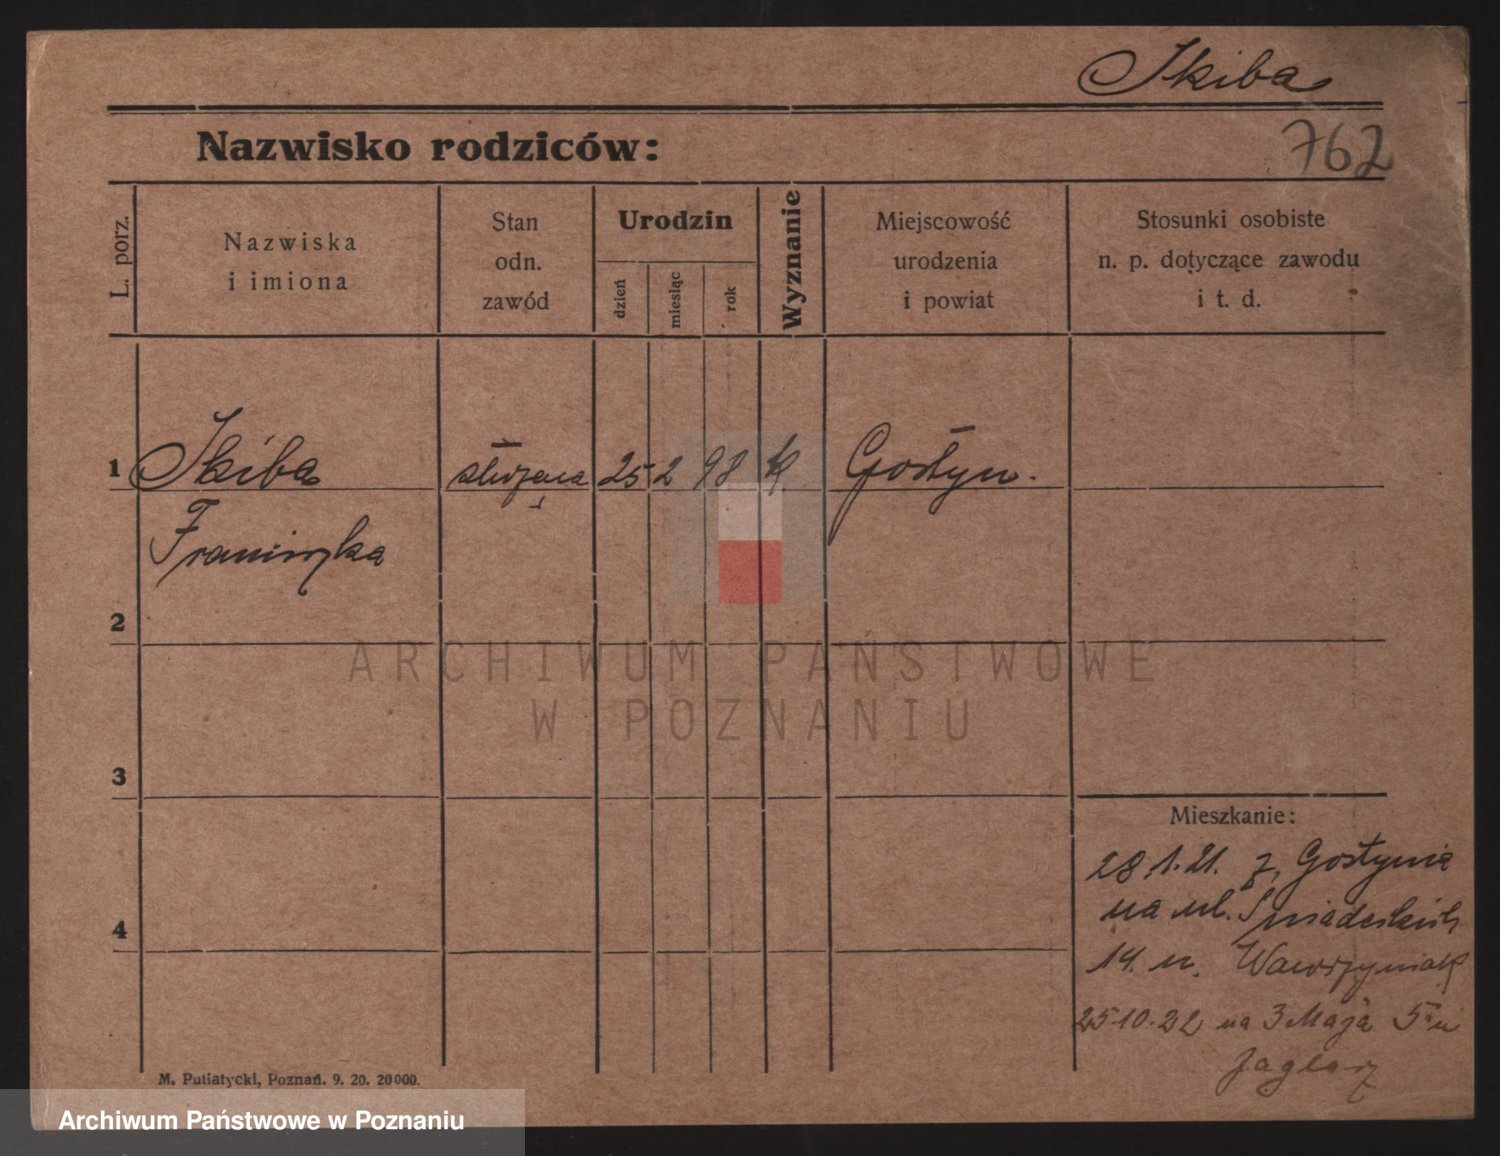 Skiba
Nazwisko rodziców:
762
L. porz.
Nazwiska
i imiona
Stan
odn.
zawód
Urodzin
dzień
miesiąc
rok
Wyznanie
Miejscowość
urodzenia
i powiat
Stosunki osobiste
n. p. dotyczące zawodu
i t. d.
1 Skiba służąca 25 2 98 k. Gostyn.
Franciszka
2
3
4
ARCHIWUM PAŃSTWOWE
W POZNANIU
Mieszkanie:
28.1.21. z Gostynia
na ul. Śniadeckich
14. u. Wawrzyniak
25.10.22 na 3 Maja 5 u
Jaglarz
M. Putiatycki, Poznań. 9. 20. 20000.
Archiwum Państwowe w Poznaniu